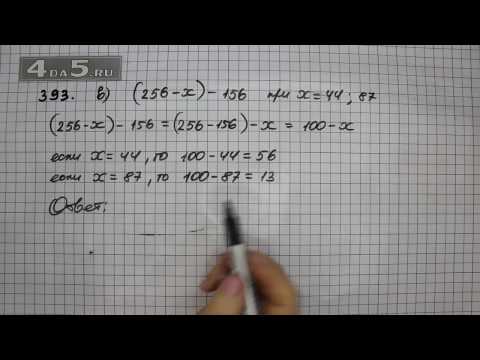 4DA5.RU
393. в) (256-x)-156 при x=44; 87
(256-x)-156=(256-156)-x=100-x
если x=44, то 100-44=56
если x=87, то 100-87=13
Ответ: